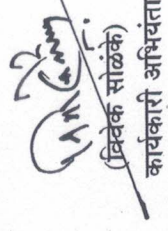 (विवेक सोळंके)
कार्यकारी अभियंता